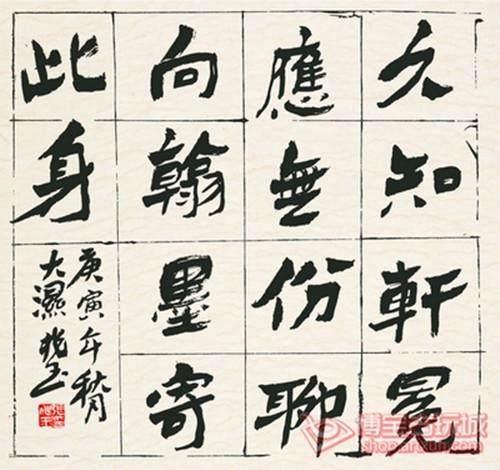 久知軒冕
應無份聊
向翰墨寄
此身
庚寅年秋月
大濕
shop.artxun.com